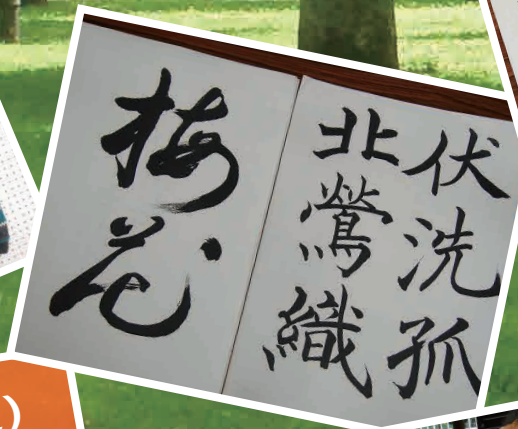 伏洗孤
北鶯織
梅花
)